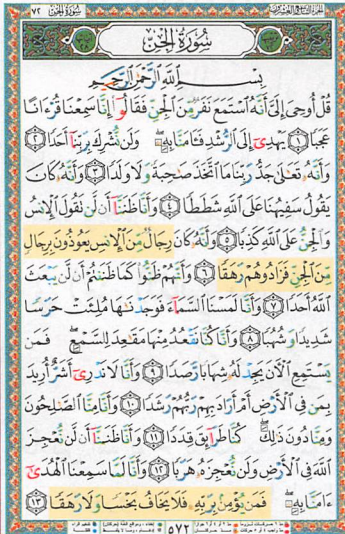 سُورَةُ الجِنِّ
بِسْمِ اللَّهِ الرَّحْمَٰنِ الرَّحِيمِ
قُلْ أُوحِىَ إِلَىَّ أَنَّهُ ٱسْتَمَعَ نَفَرٌ مِّنَ ٱلْجِنِّ فَقَالُوٓا۟ إِنَّا سَمِعْنَا قُرْءَانًا
عَجَبًا ١ يَهْدِىٓ إِلَى ٱلرُّشْدِ فَـَٔامَنَّا بِهِۦ ۖ وَلَن نُّشْرِكَ بِرَبِّنَآ أَحَدًا ٢
وَأَنَّهُۥ تَعَٰلَىٰ جَدُّ رَبِّنَا مَا ٱتَّخَذَ صَٰحِبَةً وَلَا وَلَدًا ٣ وَأَنَّهُۥ كَانَ
يَقُولُ سَفِيهُنَا عَلَى ٱللَّهِ شَطَطًا ٤ وَأَنَّا ظَنَنَّآ أَن لَّن تَقُولَ ٱلْإِنسُ
وَٱلْجِنُّ عَلَى ٱللَّهِ كَذِبًا ٥ وَأَنَّهُۥ كَانَ رِجَالٌ مِّنَ ٱلْإِنسِ يَعُوذُونَ بِرِجَالٍ
مِّنَ ٱلْجِنِّ فَزَادُوهُمْ رَهَقًا ٦ وَأَنَّهُمْ ظَنُّوا۟ كَمَا ظَنَنتُمْ أَن لَّن يَبْعَثَ
ٱللَّهُ أَحَدًا ٧ وَأَنَّا لَمَسْنَا ٱلسَّمَآءَ فَوَجَدْنَٰهَا مُلِئَتْ حَرَسًا
شَدِيدًا وَشُهُبًا ٨ وَأَنَّا كُنَّا نَقْعُدُ مِنْهَا مَقَٰعِدَ لِلسَّمْعِ ۖ فَمَن
يَسْتَمِعِ ٱلْـَٔانَ يَجِدْ لَهُۥ شِهَابًا رَّصَدًا ٩ وَأَنَّا لَا نَدْرِىٓ أَشَرٌّ أُرِيدَ
بِمَن فِى ٱلْأَرْضِ أَمْ أَرَادَ بِهِمْ رَبُّهُمْ رَشَدًا ١٠ وَأَنَّا مِنَّا ٱلصَّٰلِحُونَ
وَمِنَّا دُونَ ذَٰلِكَ ۖ كُنَّا طَرَآئِقَ قِدَدًا ١١ وَأَنَّا ظَنَنَّآ أَن لَّن نُّعْجِزَ
ٱللَّهَ فِى ٱلْأَرْضِ وَلَن نُّعْجِزَهُۥ هَرَبًا ١٢ وَأَنَّا لَمَّا سَمِعْنَا ٱلْهُدَىٰٓ
ءَامَنَّا بِهِۦ ۖ فَمَن يُؤْمِنۢ بِرَبِّهِۦ فَلَا يَخَافُ بَخْسًا وَلَا رَهَقًا ١٣
٥٧٢